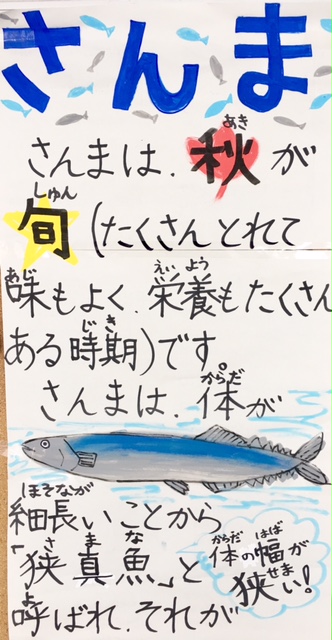 さんま
さんまは、秋が
あき
旬(たくさんとれて
しゅん
味もよく、栄養もたくさん
あじ えいよう
ある時期)です
じき
さんまは、体が
からだ
細長いことから
ほそなが
「狭真魚」と
さまな
呼ばれ、それが
よ
体の幅が
からだ はば
狭い!
せま